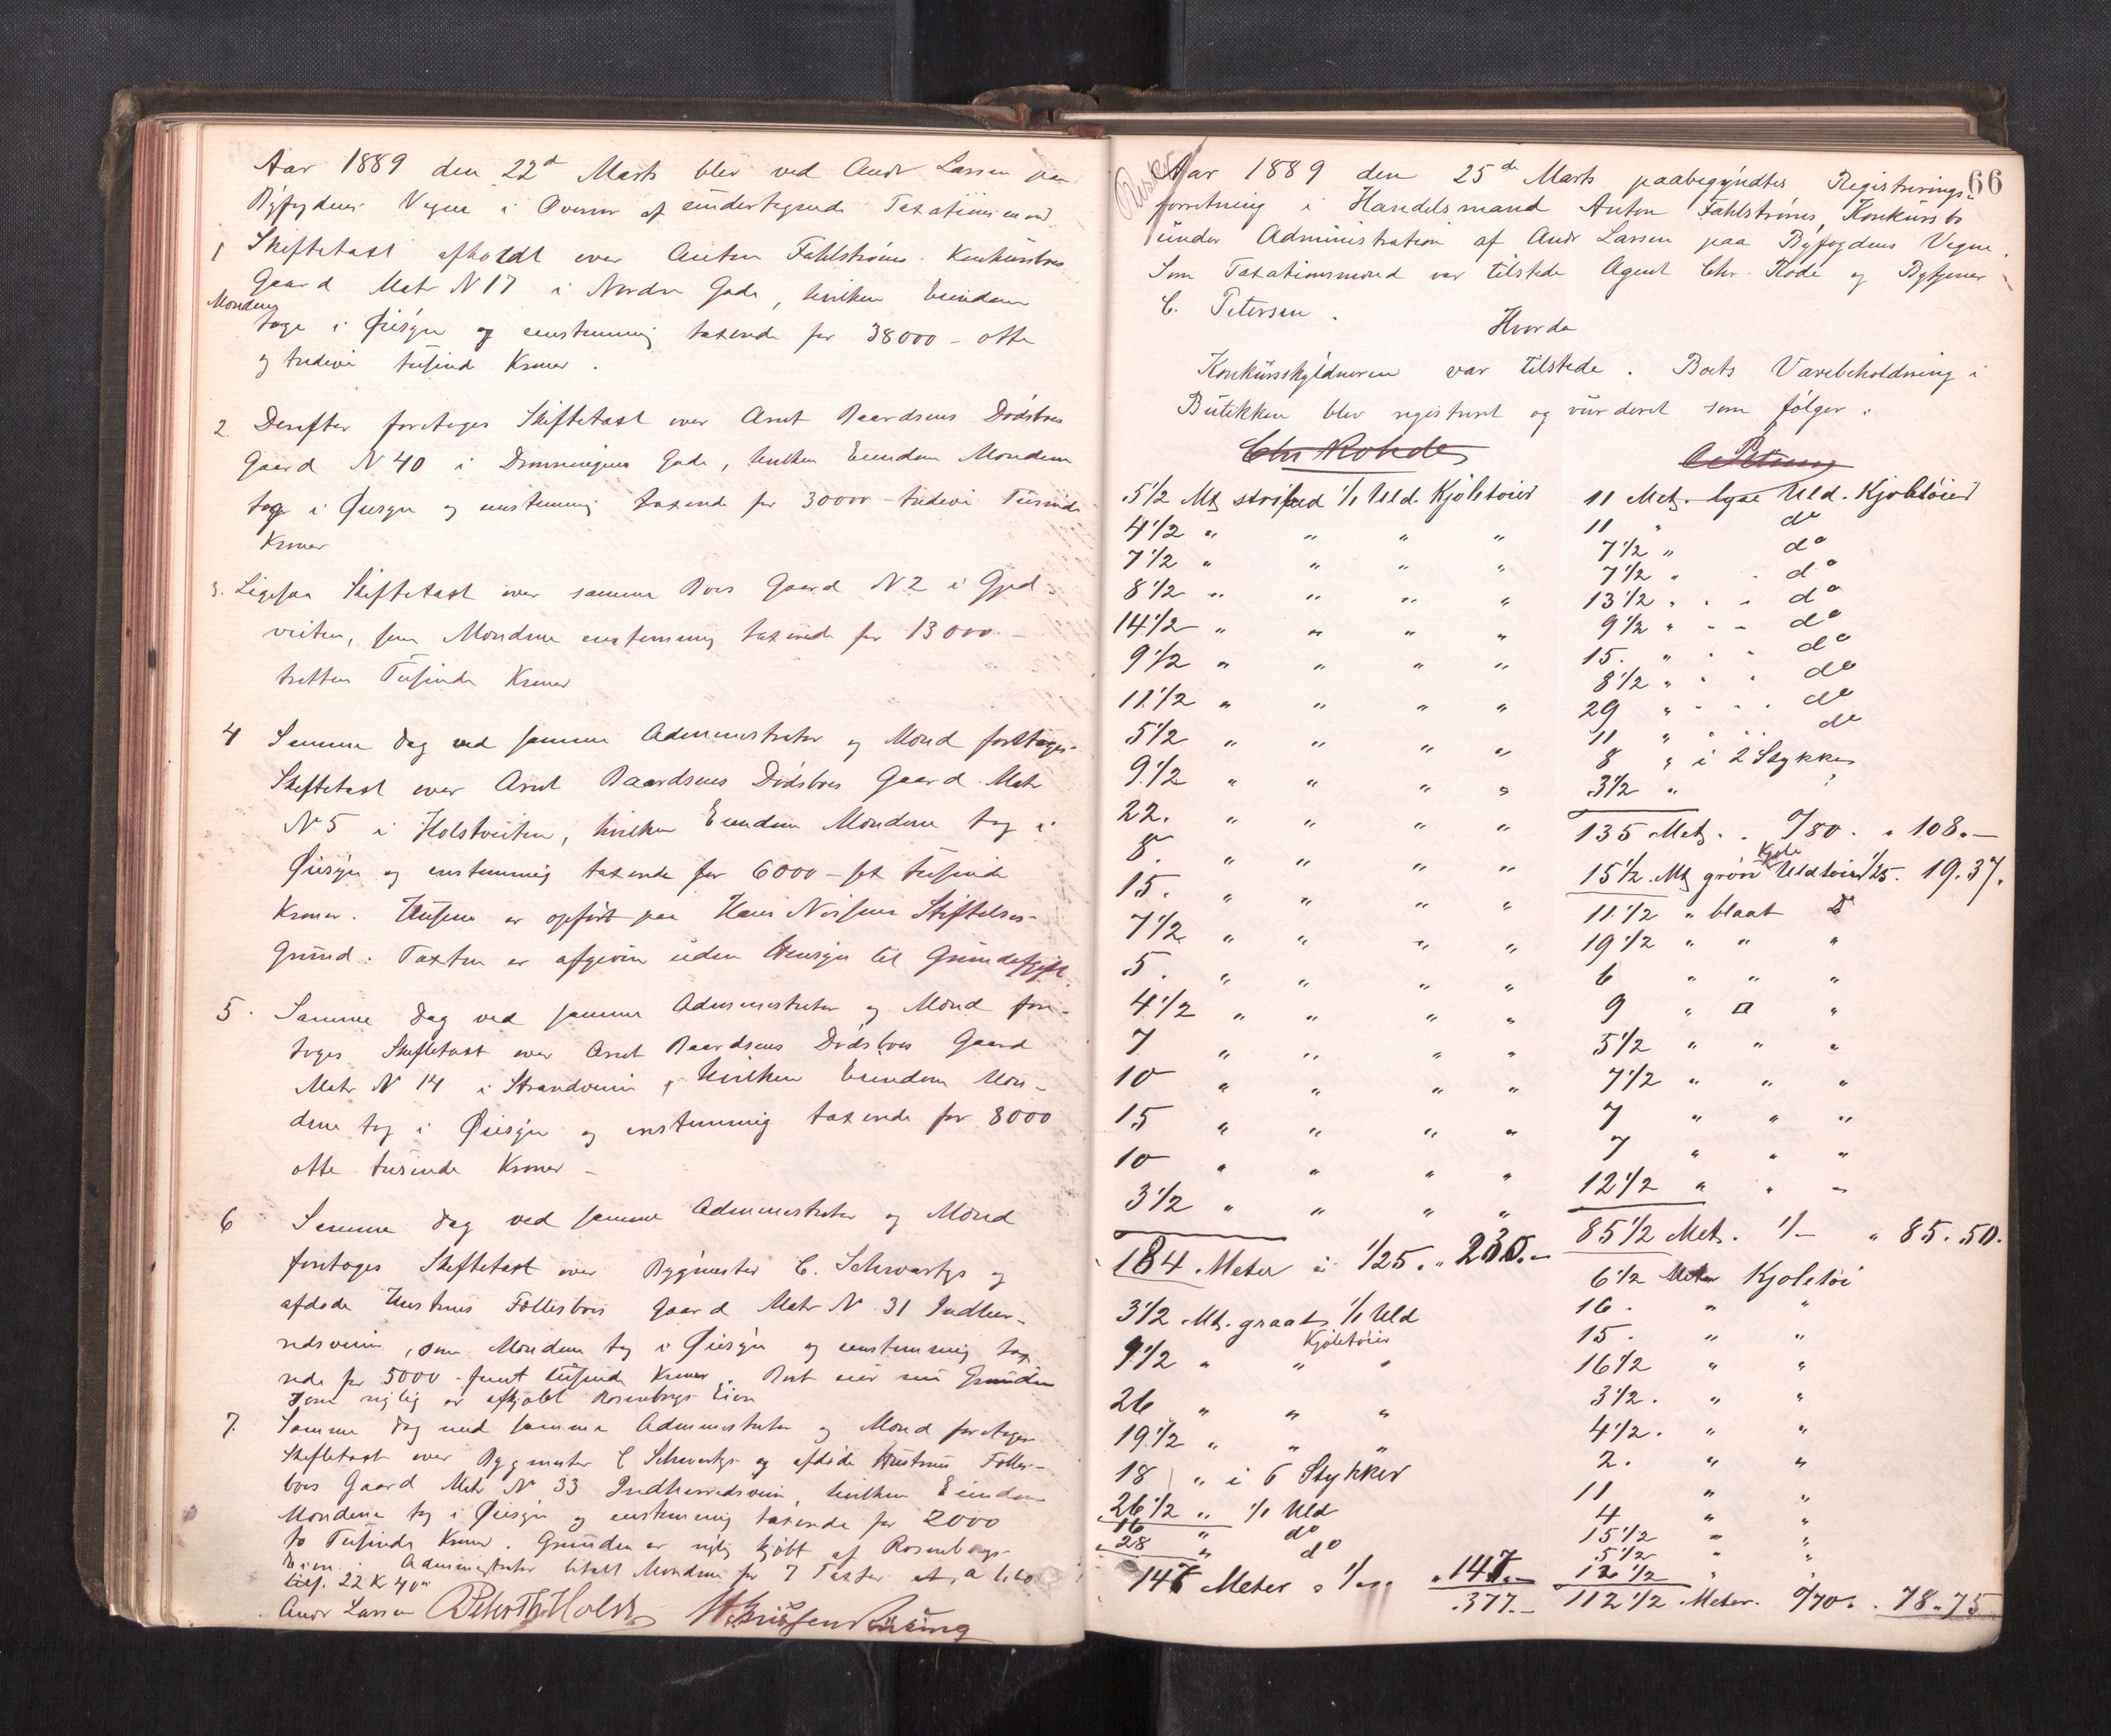 Aar 1889 den 22de Marts blev ved Andr Larsen paa
Byfogdens Vegne i Overvær af undertegnede Taxationsmænd
1 Skiftetaxt afholdt over Anton Fahlstrøms Konkursboes
Gaard Matr N 17 i Nordre Gade, hvilken Eiendom
Mændene
toges i Øiesyn og enstemmig taxerede for 38000 - otte
og tredive tusind Kroner.
2. Derefter foretoges Skiftetaxt over Arnt Baardsens Dødsboes
Gaard N 40 i Dronningens Gade, hvilken Eiendom Mændene
tog i Øiesyn og enstemmig taxerede for 30000 - tredive Tusinde
Kroner
3. Ligesaa Skiftetaxt over samme Boes Gaard N 2 i Gjed-
veiten, som Mændene enstemmig taxerede for 13000.-
tretten Tusinde Kroner
4 Samme Dag ved samme Administrator og Mænd foretoges
Skiftetaxt over Arnt Baardsens Dødsboes Gaard Matr
N 5 i Holstveiten, hvilken Eiendom Mændene tog i
Øiesyn og enstemmig taxerede for 6000 - sex tusinde
Kroner. Husene er opført paa Hans Nissens Stiftelses-
Grund. Taxten er afgiven uden Hensyn til Grundafgift.
5. Samme Dag ved samme Administrator og Mænd fore-
toges Skiftetaxt over Arnt Baardsens Dødsboes Gaard
Matr N 14 i Strandveien, hvilken Eiendom Mæn-
dene tog i Øiesyn og enstemmig taxerede for 8000
otte tusinde Kroner -
6 Samme Dag ved samme Administrator og Mænd
foretoges Skiftetaxt over Bygmester C. Schwartz og
afdøde Hustrues Fællesboes Gaard Matr N 31 Indher-
redsveien, som Mændene tog i Øiesyn og enstemmig tax
erede for 5000 - femt tusinde Kroner. Boet eier Grunden
som nylig er afkjøbt Rosenborgs Eier
7. Samme Dag ved samme Administrator og Mænd foretoges
Skiftetaxt over Bygmester C Schwartz og afdøde Hustrues Fælles-
boes Gaard Matr N 33 Indherredsveien, hvilken Eiendom
Mændene tog i Øiesyn og enstemmig taxerede for 2000
to Tusinde Kroner. Grunden er nylig kjøbt af Rosenborgs
Eier. Administrator betalt Mændene for 7 Taxter a
tils. 22 Kr 40
Andr Larsen
66
Aar 1889 den 25de Marts paabegyndtes Registrerings-
forretning i Handelsmand Anton Fahlstrøms Konkursbo
under Administration af Andr Larsen paa Byfogdens Vegne.
Som Taxationsmænd var tilstede Agent Chr. Rode og
C. Petersen.
Hvorda
Konkursskyldneren var tilstede. Boets Varebeholdning i
Butikken blev registreret og vurderet som følger:
Chr Rohde
5 1/2 Mt stribed 1/1 Uld. Kjoletøier
4 1/2 " " " "
7 1/2 " " " "
8 1/2 " " " "
14 1/2 " " " "
9 1/2 " " " "
11 1/2 " " " "
5 1/2 " " " "
9 1/2 " " " "
22. " " " "
8. " " " "
15. " " " "
7 1/2 " " " "
5. " " " "
4 1/2 " " " "
7 " " " "
10 " " " "
15 " " " "
10 " " " "
3 1/2 " " " "
184 Meter à 1/25. " 230.-
3 1/2 Mt. graat 1/1 Uld
Kjoletøier
9 1/2 " " "
26 " " "
19 1/2 " " "
18 " i 6 Stykker
26 1/2 " 1/1 Uld
16 " do
28 " do
147 Meter a 1/- " 147.-
377.-
11 Met. lyse Uld. Kjoletøier
11 " do
7 1/2 " do
7 1/2 " do
13 1/2 " do
9 1/2 " do
15. " do
8 1/2 " do
29 " do
11 " do
8 " i 2 Stykker
3 1/2 "
135 Met. 0/80. " 108.-
Kjole
15 1/2 Mt grøn Uldtøier 1/25. 19.37.
11 1/2 " blaat Do
19 1/2 " " "
6 " " "
9 " " "
5 1/2 " " "
7 1/2 " " "
7 " " "
7 " " "
12 1/2 " " "
85 1/2 Met. 1/- " 85.50.
6 1/2 Meter Kjoletøi
16. " "
15. " "
16 1/2 " "
3 1/2. " "
4 1/2. " "
2. " "
11 " "
4 " "
15 1/2 " "
5 1/2 " "
12 1/2 " "
112 1/2 Meter. 0/70. . 78.75